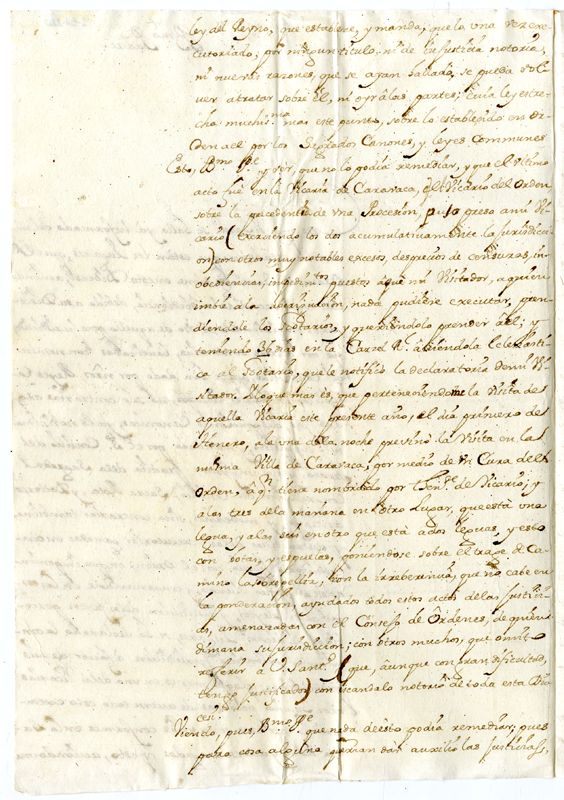 ley del Reyno, que establece, y manda, que la una vez exe
cutoriado, por ningun titulo, ni de injusticia notoria,
ni nuevas razones, que se ayan hallado, se pueda vol
ver a tratar sobre él, ni oyr à las partes;
cha muchis.mo mas este punto, sobre lo establecido en or
den a el por los Sagrados Canones, y leyes Communes
Esto, B.mo P.e y ver, que no lo podia remediar, y que el ultimo
acto fue en la Vicaria de Caravaca, q el Vicario del Orden
sobre la precedencia de una Procesion, puso preso a mi Vi
cario (exerciendo los dos acumulativamente la jurisdicci
on) con otros muy notables excesos, desprecios de censuras, in
obediencias, impedim.tos puestos à que mi Visitador, a quien
imbie a la averiguacion, nada pudiese executar, pren
diendole los Notarios, y queriendolo prender à el; y
teniendo mas en la Carzel R. à siendola Eclesiasti
ca al Notario, que le notificò la declaratoria de mi Vi
sitador. Y lo que mas es, que perteneciendome la Visita de
aquella Vicaria este presente año, y el dia primero de
Henero, a la una de la noche previno la Visita en la
misma Villa de Caravaca, por medio de un Cura del
Orden, a q.n tiene nombrado por Then.te de Vicario; y
a las tres de la mañana en otro Lugar, que està una
legua, y a las seis en otro que està a dos leguas, y esto
con botas, y espuelas, poniendose sobre el trage de Ca
mino la sobrepelliz, con la irreverencia, que no cabe en
la ponderacion, ayudados todos estos actos de las justici
as, amenazadas con el Consejo de Ordenes, de quien
dimana su jurisdiccion; con otros muchos, que omito
referir a V. Sant.d (y que, aunque con gran dificultad,
tengo justificados) con escandalo notorio de toda esta Dio
cen.
Viendo, pues, B.mo P.e que nada de esto podia remediar; pues
para cosa alguna querian dar auxilio las justicias,